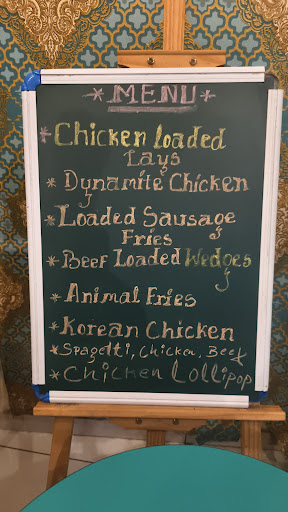 * MENU *
* Chicken loaded
Lays
* Dynamite Chicken
* Loaded Sausage
Fries
* Beef Loaded Wedges
* Animal Fries
* Korean Chicken
* Spagetti, Chicken, Beef
* Chicken Lollipop